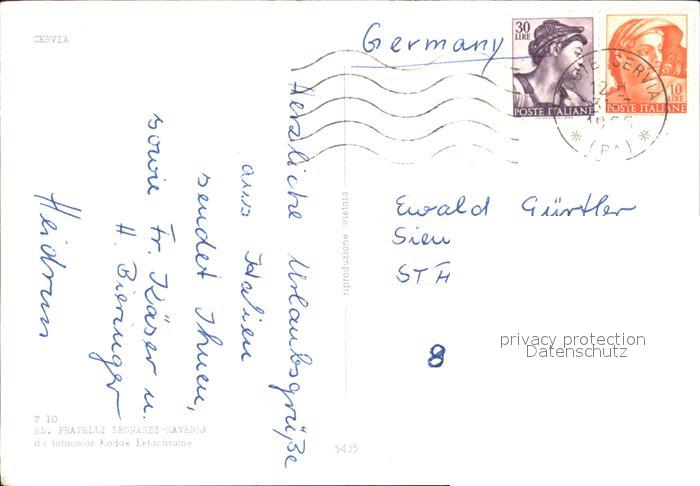 CERVIA
Germany
30
LIRE
POSTE ITALIANE
10
LIRE
POSTE ITALIANE
CERVIA
12
(RA)
Herzliche Urlaubsgrüße
aus Italien
sendet Ihnen,
sowie Fr. Käser u.
H. Bieringer
Heidrun
riproduzione vietata
Ewald Gürtler
Siem
STH
8
privacy protection
Datenschutz
T 10
ED. FRATELLI LEONARDI-RAVENNA
da fotocolor Kodak Ektachrome
5435